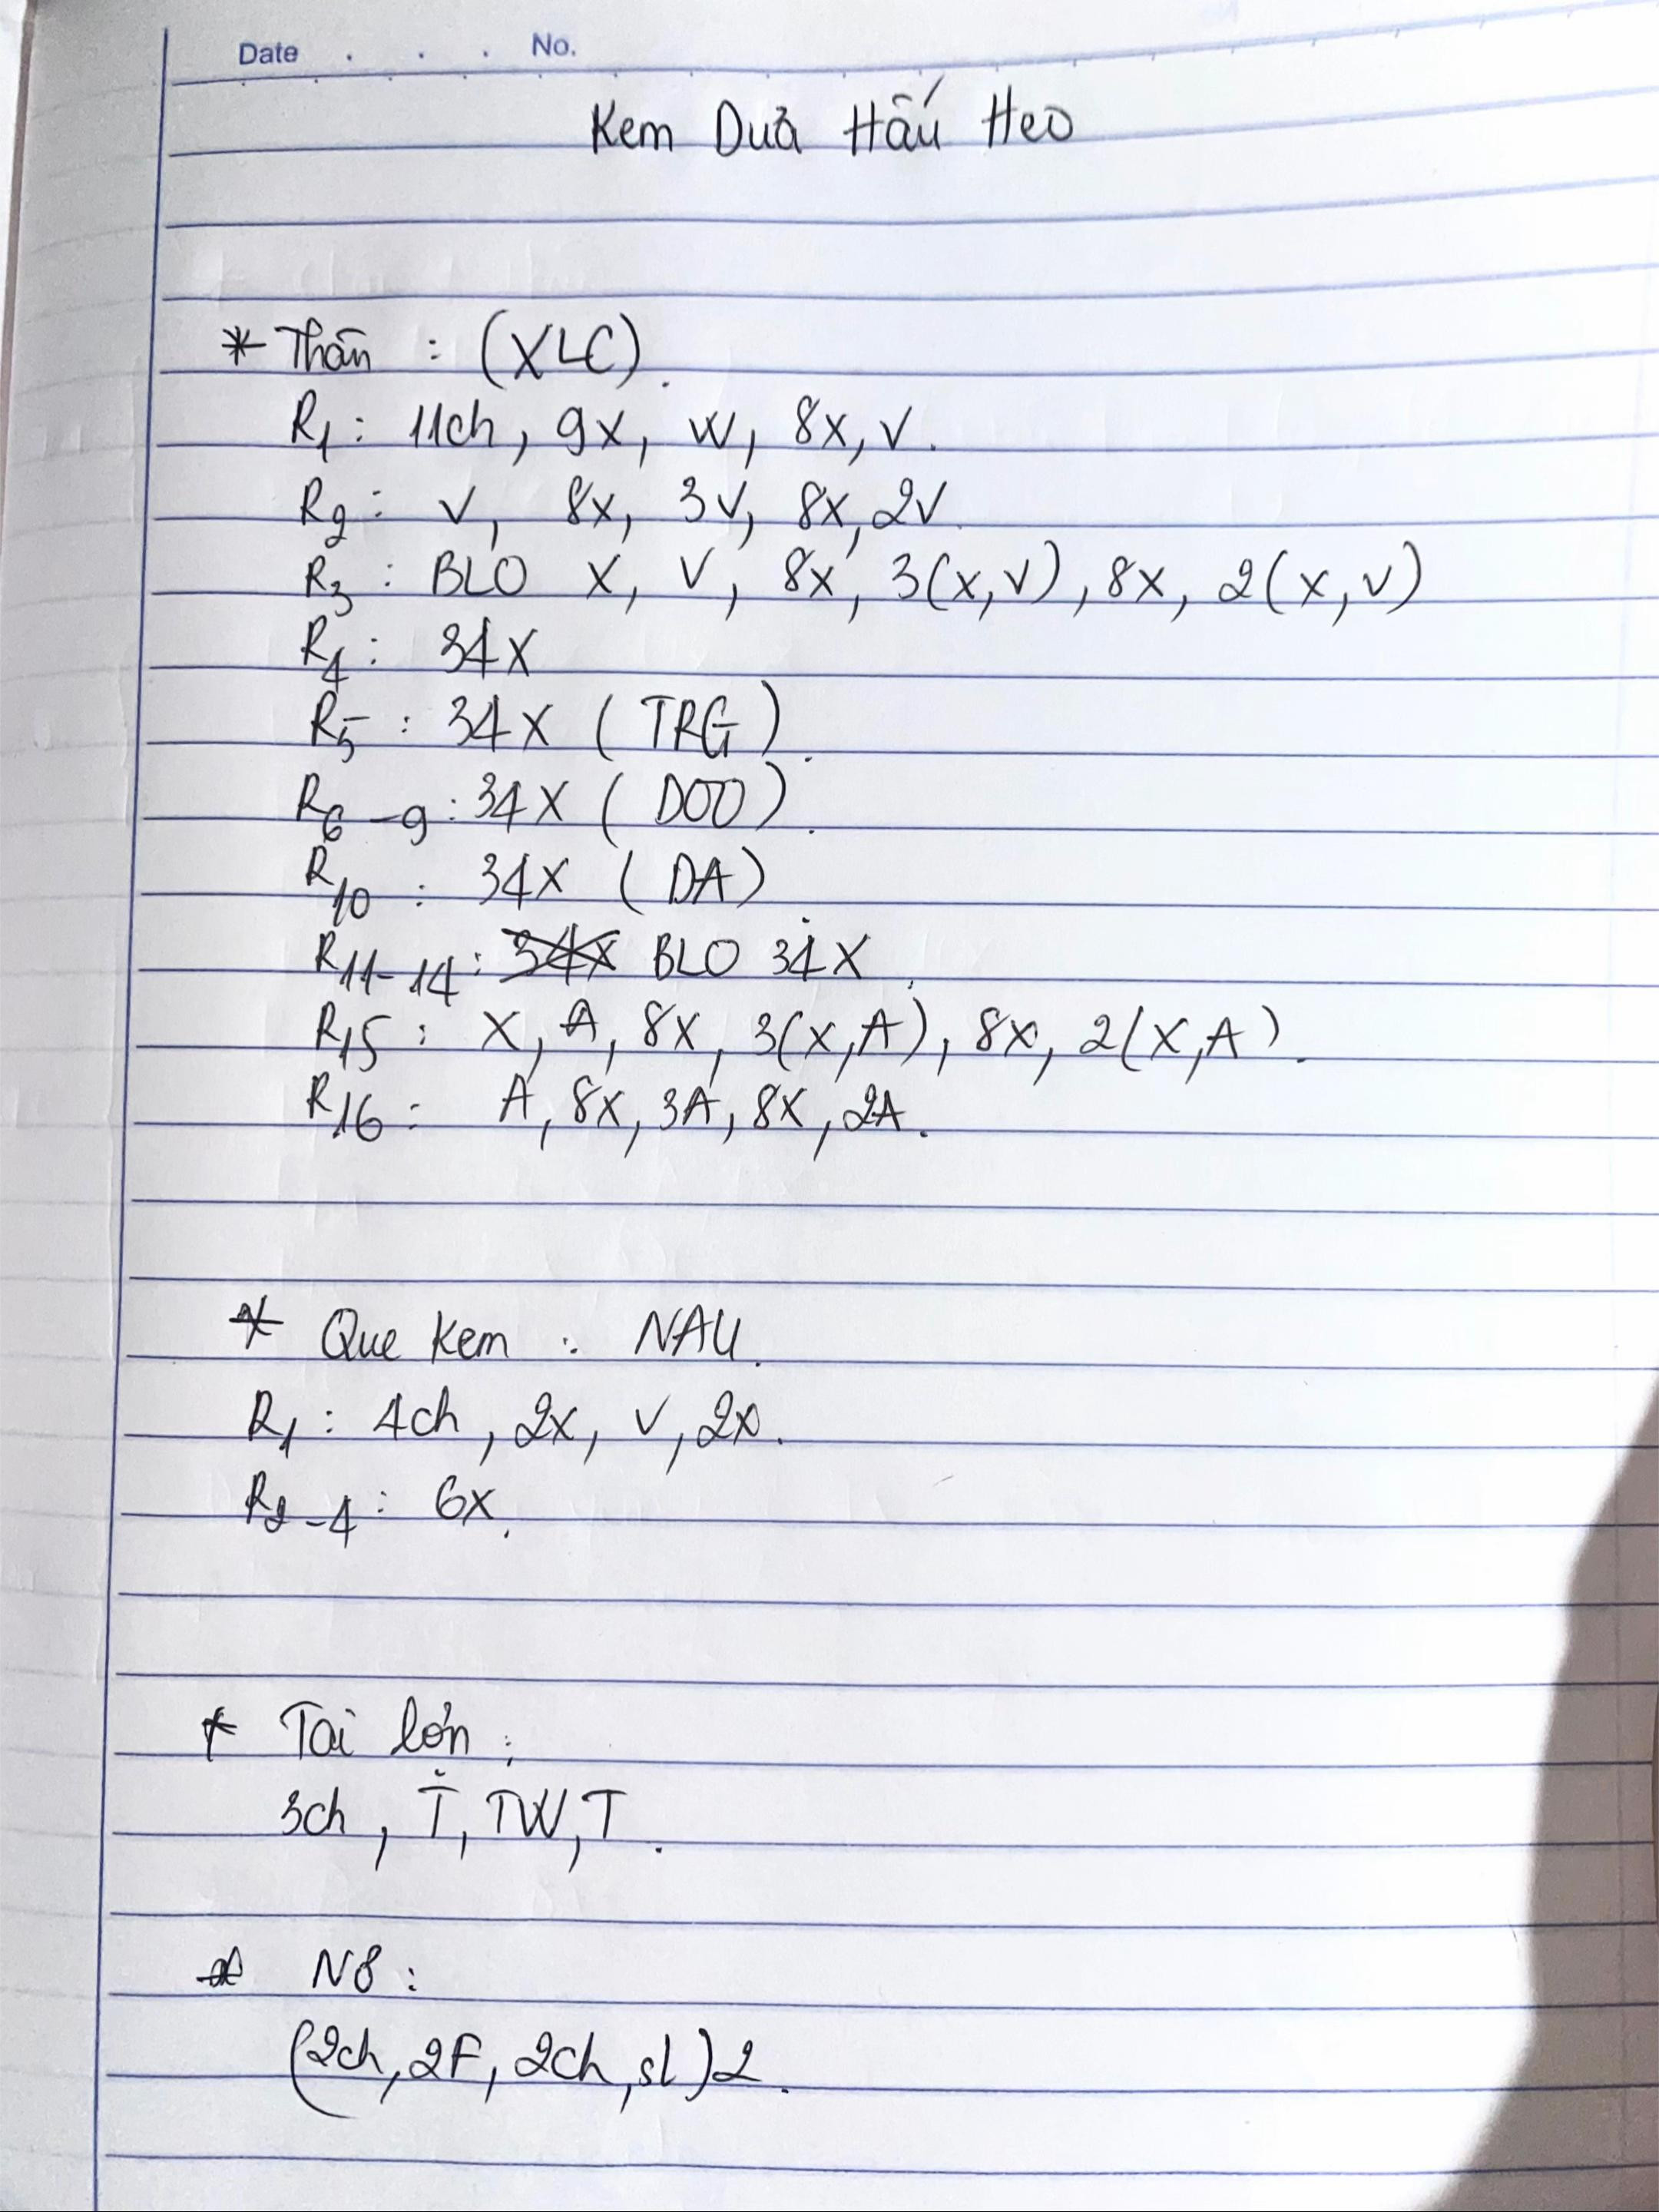 Date . . . No.
Kem Dưa Hấu Heo
* Thân : (XLC).
R1 : 11ch, 9x, W, 8x, V.
R2 : V, 8x, 3V, 8x, 2V.
R3 : BLO X, V, 8x, 3(x,V), 8x, 2(x,V)
R4 : 34X
R5 : 34X (TRG).
R6-9 : 34X (DOO).
R10 : 34X (DA)
R11-14 : 34x BLO 34X.
R15 : X, A, 8X, 3(X,A), 8X, 2(X,A).
R16 : A, 8X, 3A, 8X, 2A.
* Que Kem : NAU.
R1 : 4ch, 2x, V, 2x.
R2-4 : 6x.
* Tai lớn :
3ch, T, TW, T.
* Nơ :
(2ch, 2F, 2ch, sl)2.